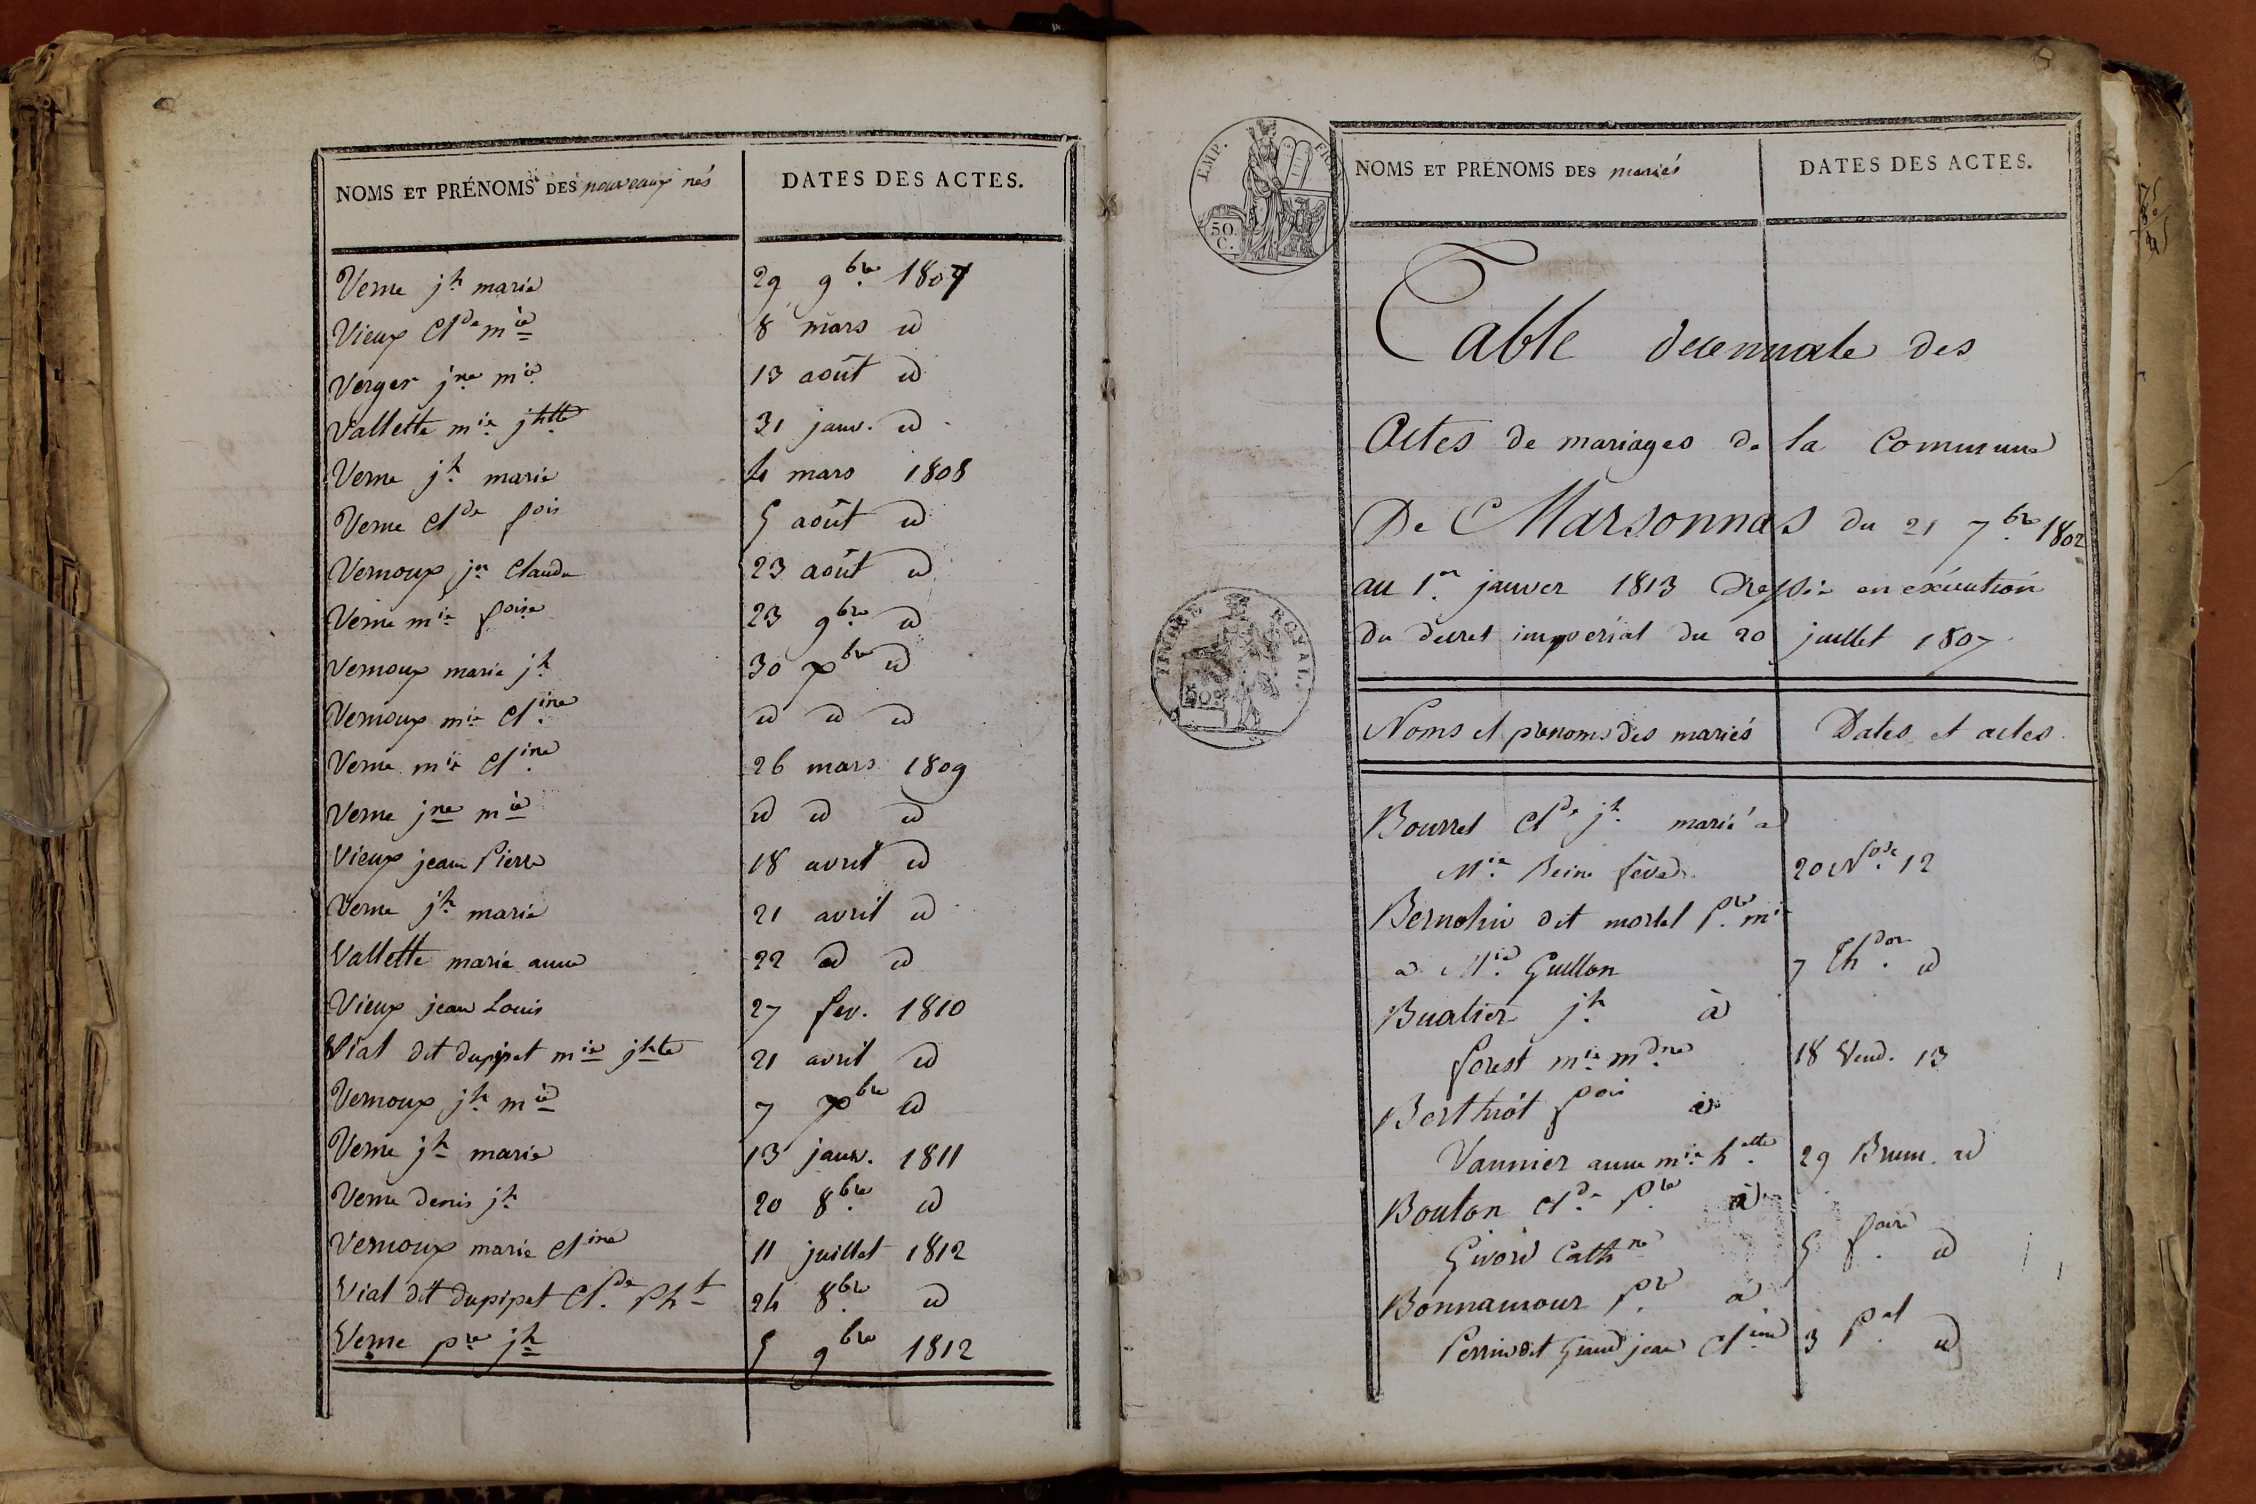 NOMS ET PRÉNOMS DES nouveaux nés
DATES DES ACTES.
Verne jh marie 29 9bre 1807
Vieux Clde mie 8 mars id
Verger jne mie 13 août id
Vallette mie jhtte 31 janv. id
Verne jh marie 4 mars 1808
Verne Clde fois 5 août id
Vernoux jn Claude 23 août id
Verne mie foise 23 9bre id
Vernoux marie jh 30 xbre id
Vernoux mie Cline id id id
Verne mie Cline 26 mars 1809
Verne jne mie id id id
Vieux jean Pierre 18 avril id
Verne jh marie 21 avril id
Vallette marie anne 22 id id
Vieux jean Louis 27 fev. 1810
Vial dit dupipet mie jhte 21 avril id
Vernoux jh mie 7 xbre id
Verne jh marie 13 janv. 1811
Verne denis jh 20 8bre id
Vernoux marie Cline 11 juillet 1812
Vial dit dupipet Clde Pht 24 8bre id
Verne pre jh 5 9bre 1812
EMP. FR
50 C.
TIMBRE ROYAL
50
NOMS ET PRÉNOMS DES mariés
DATES DES ACTES.
Table decennale des
Actes de mariages de la Commune
De Marsonnas du 21 7bre 1802
au 1er janver 1813 Dressée en exécution
du decret imperial du 20 juillet 1807
Noms et prenoms des mariés Dates et actes
Bourret Clde jh marié a
Mie Reine 20 Nose 12
dit mortel pre mie
a Mie Guillon 7 Thdor id
Buatier jh à
forest mie mdne 18 Vend. 13
Berthiot fois à
Vannier anne mie htte 29 Brum. id
Bouton Cld pre à
Givord Cathne 5 foire id
Bonnamour pre a
Perrin dit Grand jean Cline 3 Pal id